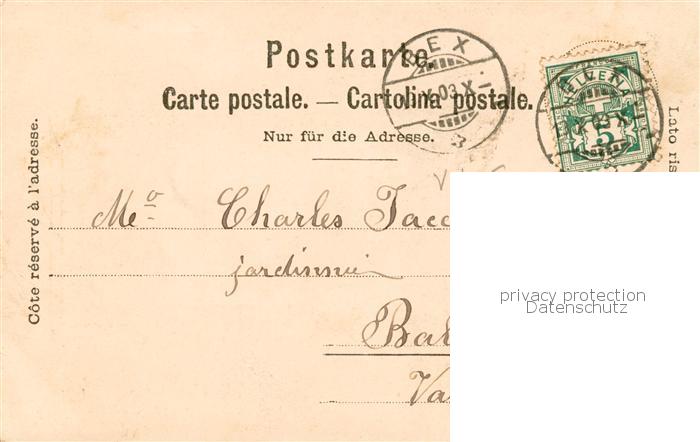 Postkarte.
Carte postale. — Cartolina postale.
Nur für die Adresse.
Côte réservé à l'adresse.
Lato ris
BEX
X.03.X
HELVETIA
5
Charles Jacc
jardinnier
Bal
Va
privacy protection
Datenschutz